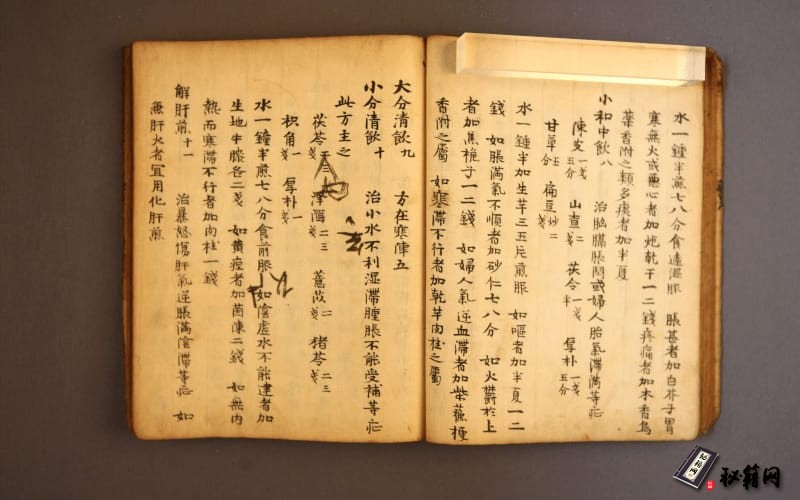 水一鐘半煎七八分食遠温服　脹甚者加白芥子胃
寒無火或惡心者加炮乾干一二錢疼痛者加木香烏
藥香附之類多痰者加半夏
小和中飲八　治胸膈脹悶或婦人胎氣滯滿等症
陳皮一戔五分　山查二戔　茯令一戔半　厚朴一戔五分
甘草五分　扁豆炒二戔
水一鐘半加生芉三五斤煎服　如嘔者加半夏一二
錢　如脹滿氣不順者加砂仁七八分　如火欝於上
者加焦梔子一二錢　如婦人氣逆血滯者加紫蘓梗
香附之屬　如寒滯不行者加乾芉肉桂之屬
大分清飲九　方在寒陣五
小分清飲十　治小水不利湿滯腫脹不能受補等症
此方主之
茯苓二三戔　澤瀉二三戔　薏苡二戔　猪苓二三戔
枳角一戔　厚朴一戔
水一鐘半煎七八分食前服　如陰虛水不能達者加
生地牛膝各二戔　如黄疸者加茵陳二錢　如無内
熱而寒滯不行者加肉桂一錢
解肝煎十一　治暴怒傷肝氣逆脹滿陰滯等症　如
兼肝火者宜用化肝煎
秘籍网